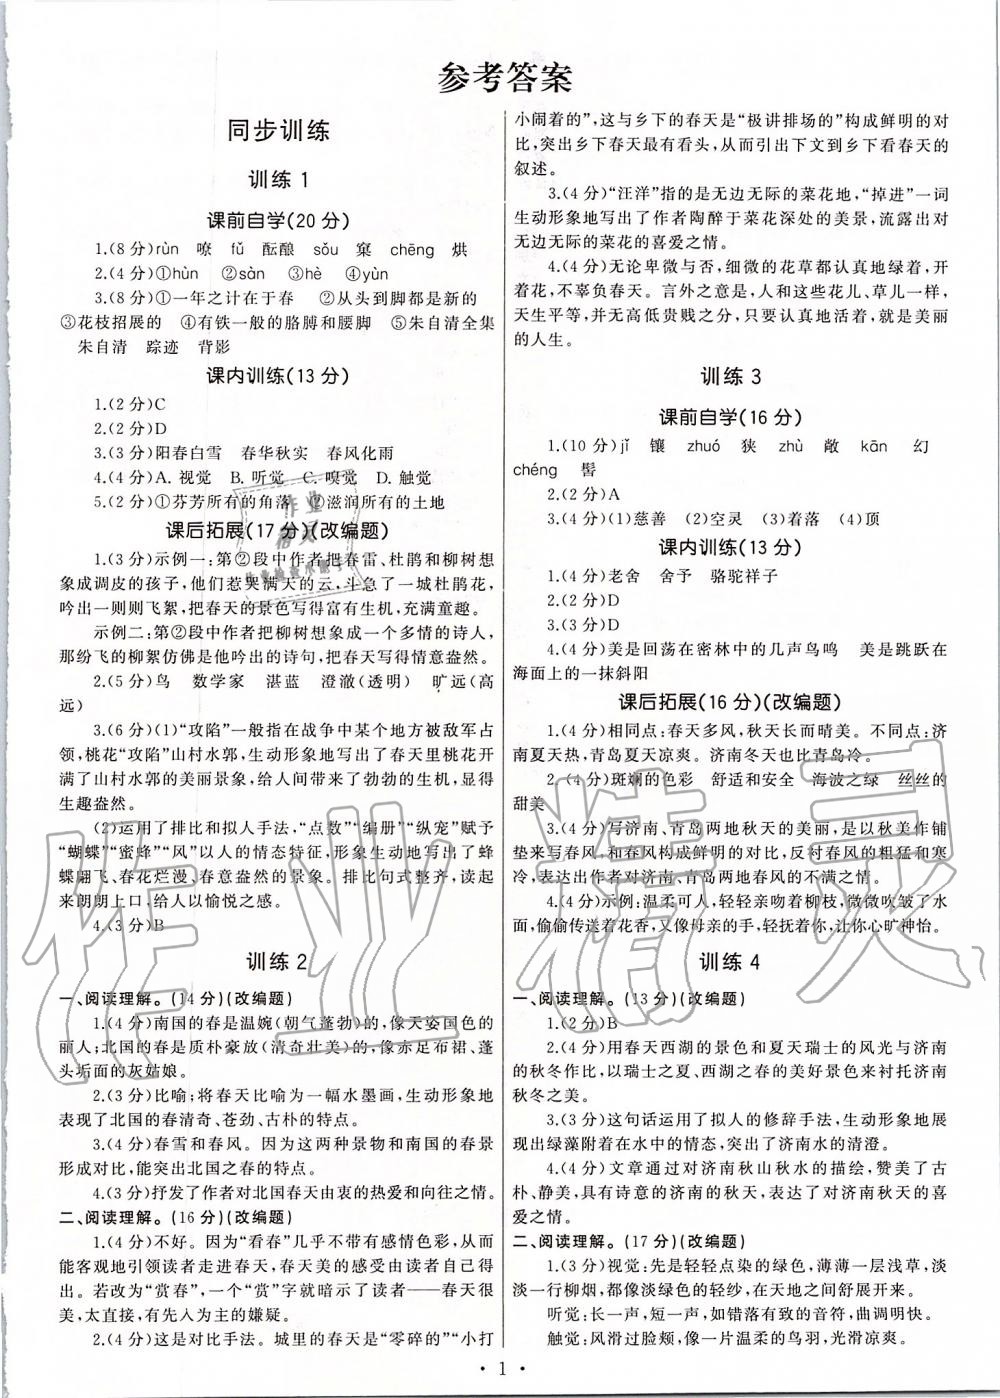 参考答案
同步训练
训练1
课前自学(20分)
1.(8分)rùn　嘹　fǔ　酝酿　sǒu　窠　chēng　烘
2.(4分)①hùn　②sàn　③hè　④yùn
3.(8分)①一年之计在于春　②从头到脚都是新的
③花枝招展的　④有铁一般的胳膊和腰脚　⑤朱自清全集
朱自清　踪迹　背影
课内训练(13分)
1.(2分)C
2.(2分)D
3.(3分)阳春白雪　春华秋实　春风化雨
4.(4分)A.视觉　B.听觉　C.嗅觉　D.触觉
5.(2分)①芬芳所有的角落　②滋润所有的土地
课后拓展(17分)(改编题)
1.(3分)示例一:第②段中作者把春雷、杜鹃和柳树想
象成调皮的孩子,他们惹哭满天的云,斗急了一城杜鹃花,
吟出一则则飞絮,把春天的景色写得富有生机,充满童趣。
示例二:第②段中作者把柳树想象成一个多情的诗人,
那纷飞的柳絮仿佛是他吟出的诗句,把春天写得情意盎然。
2.(5分)鸟　数学家　湛蓝　澄澈(透明)　旷远(高
远)
3.(6分)(1)“攻陷”一般指在战争中某个地方被敌军占
领,桃花“攻陷”山村水郭,生动形象地写出了春天里桃花开
满了山村水郭的美丽景象,给人间带来了勃勃的生机,显得
生趣盎然。
(2)运用了排比和拟人手法,“点数”“编册”“纵宠”赋予
“蝴蝶”“蜜蜂”“风”以人的情态特征,形象生动地写出了蜂
蝶翩飞、春花烂漫、春意盎然的景象。排比句式整齐,读起
来朗朗上口,给人以愉悦之感。
4.(3分)B
训练2
一、阅读理解。(14分)(改编题)
1.(4分)南国的春是温婉(朝气蓬勃)的,像天姿国色的
丽人;北国的春是质朴豪放(清奇壮美)的,像赤足布裙、蓬
头垢面的灰姑娘。
2.(3分)比喻;将春天比喻为一幅水墨画,生动形象地
表现了北国的春清奇、苍劲、古朴的特点。
3.(4分)春雪和春风。因为这两种景物和南国的春景
形成对比,能突出北国之春的特点。
4.(3分)抒发了作者对北国春天由衷的热爱和向往之情。
二、阅读理解。(16分)(改编题)
1.(4分)不好。因为“看春”几乎不带有感情色彩,从而
能客观地引领读者走进春天,春天美的感受由读者自己得
出。若改为“赏春”,一个“赏”字就暗示了读者——春天很
美,太直接,有先入为主的嫌疑。
2.(4分)这是对比手法。城里的春天是“零碎的”“小打
小闹着的”,这与乡下的春天是“极讲排场的”构成鲜明的对
比,突出乡下春天最有看头,从而引出下文到乡下看春天的
叙述。
3.(4分)“汪洋”指的是无边无际的菜花地,“掉进”一词
生动形象地写出了作者陶醉于菜花深处的美景,流露出对
无边无际的菜花的喜爱之情。
4.(4分)无论卑微与否,细微的花草都认真地绿着,开
着花,不辜负春天。言外之意是,人和这些花儿、草儿一样,
天生平等,并无高低贵贱之分,只要认真地活着,就是美丽
的人生。
训练3
课前自学(16分)
1.(10分)jǐ　镶　zhuó　狭　zhù　敞　kān　幻
chéng　髻
2.(2分)A
3.(4分)(1)慈善　(2)空灵　(3)着落　(4)顶
课内训练(13分)
1.(4分)老舍　舍予　骆驼祥子
2.(2分)D
3.(3分)D
4.(4分)美是回荡在密林中的几声鸟鸣　美是跳跃在
海面上的一抹斜阳
课后拓展(16分)(改编题)
1.(4分)相同点:春天多风,秋天长而晴美。不同点:济
南夏天热,青岛夏天凉爽。济南冬天也比青岛冷。
2.(4分)斑斓的色彩　舒适和安全　海波之绿　丝丝的
甜美
3.(4分)写济南、青岛两地秋天的美丽,是以秋美作铺
垫来写春风,和春风构成鲜明的对比,反衬春风的粗猛和寒
冷,表达作者对济南、青岛两地春风的不满之情。
4.(4分)示例:温柔可人,轻轻亲吻着柳枝,微微吹皱了水
面,偷偷传送着花香,又像母亲的手,轻抚着你,让你心旷神怡。
训练4
一、阅读理解。(13分)(改编题)
1.(2分)B
2.(4分)用春天西湖的景色和夏天瑞士的风光与济南
的秋冬作比,以瑞士之夏、西湖之春的美好景色来衬托济南
秋冬之美。
3.(3分)这句话运用了拟人的修辞手法,生动形象地展
现出绿藻附着在水中的情态,突出了济南水的清澄。
4.(4分)文章通过对济南秋山秋水的描绘,赞美了古
朴、静美、具有诗意的济南的秋天,表达了对济南秋天的喜
爱之情。
二、阅读理解。(17分)(改编题)
1.(3分)视觉:先是轻轻点染的绿色,薄薄一层浅草,淡
淡一行柳烟,都像淡淡绿色的轻纱,在天地之间舒展开来。
听觉:长一声,短一声,如错落有致的音符,曲调明快。
触觉:风滑过脸颊,像一片温柔的鸟羽,光滑凉爽。
· 1 ·
作业精灵